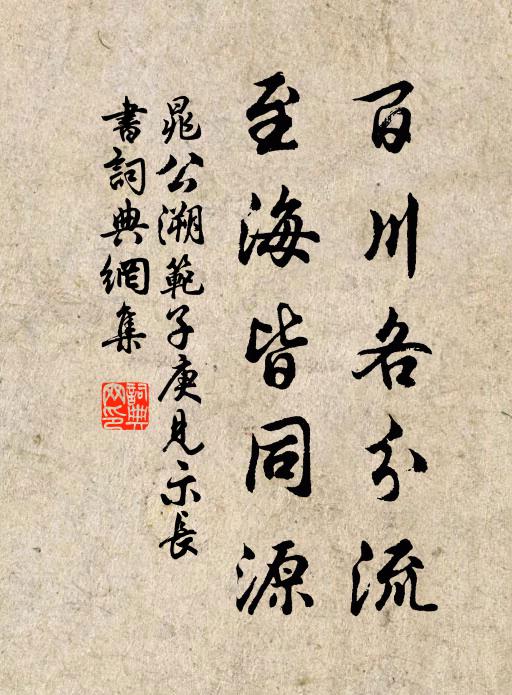 百川各分流
至海皆同源
晁公溯範子庚見示長
書詞典網集
詞典
网印